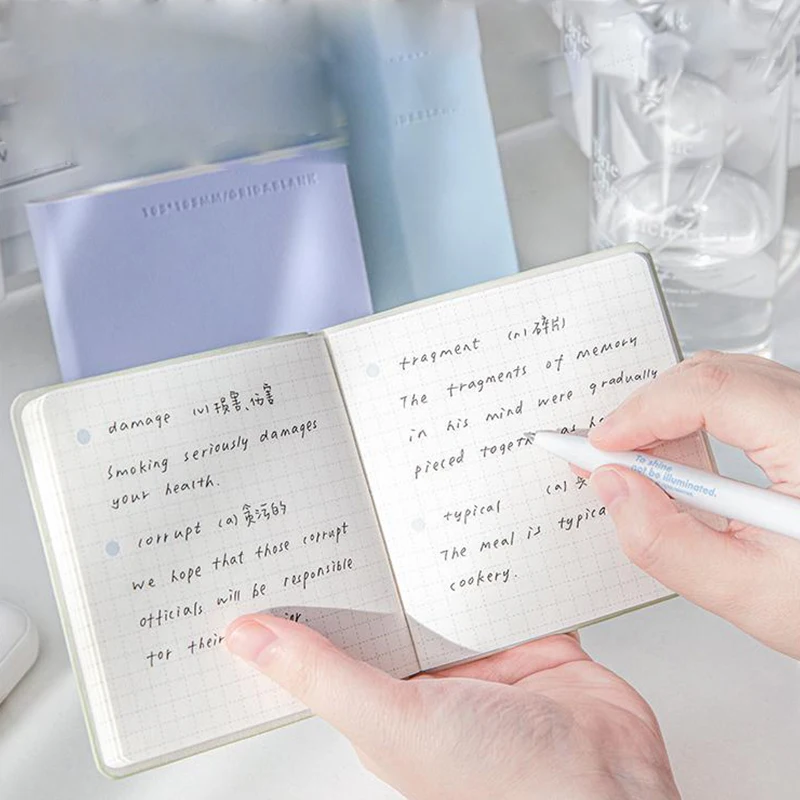 105*105MM/GRID&BLANK
damage (v) 损害、伤害
Smoking seriously damages
your health.
corrupt (a) 贪污的
we hope that those corrupt
officials will be responsible
for their
fragment (n) 碎片
The fragments of memory
in his mind were gradually
pieced as
typical (a)
The meal is
cookery.
To shine
not be illuminated.